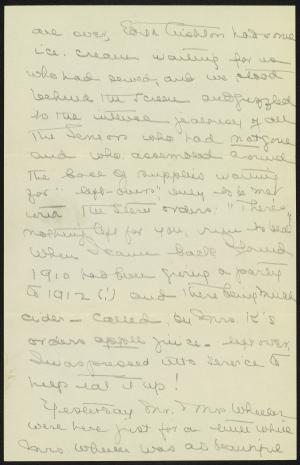 are over, Edith Crichton had some
ice-cream waiting for us
who had served, and we stood
behind the screen and guzzled
to the intense jealousy of all
the Seniors who had not gone
and who assembled around
the base of supplies waiting
for "left-overs" only to be met
with the stern orders: "There's
nothing left for you, run to bed"
When I came back found
1910 had been giving a party
to 1912 (!) and there being much
cider - called, by Mrs. K's
orders apple juice - left over,
I was pressed into service to
help eat it up!
Yesterday Mr. & Mrs Wheeler
were here just for a little while
Mrs Wheeler was as beautiful